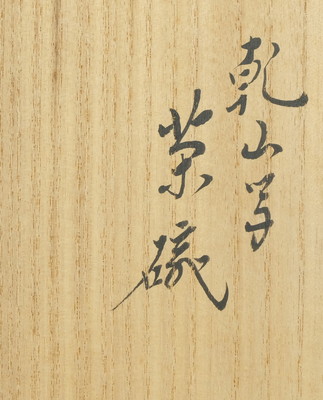 乾山写
茶碗